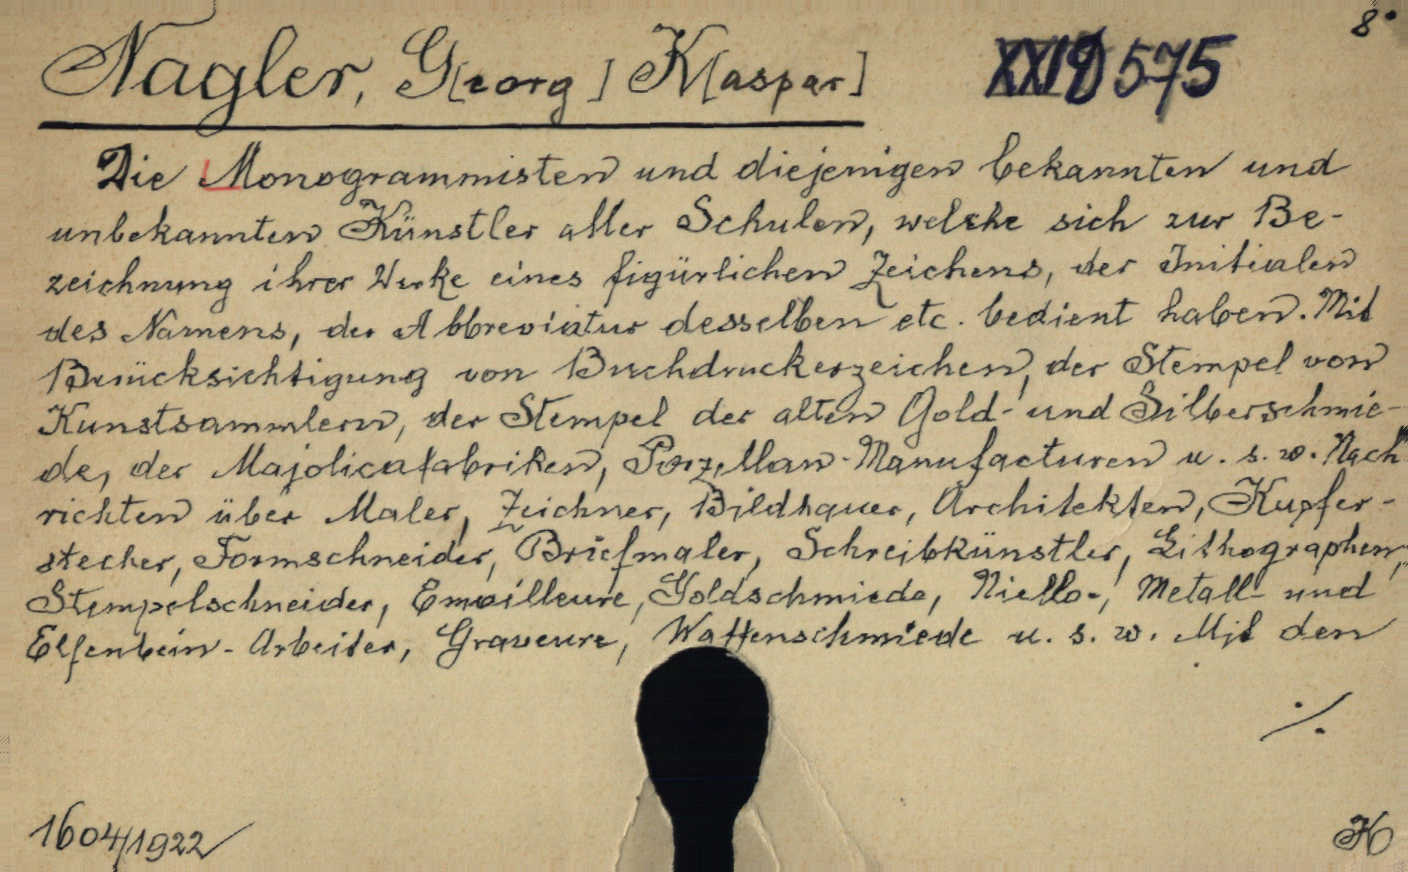 8°
Nagler, G[eorg] K[aspar] 575
Die Monogrammisten und diejenigen bekannten und
unbekannten Künstler aller Schulen, welche sich zur Be-
zeichnung ihrer Werke eines figürlichen Zeichens, der Initialen
des Namens, der Abbreviatur desselben etc. bedient haben. Mit
Berücksichtigung von Buchdruckerzeichen, der Stempel von
Kunstsammlern, der Stempel der alten Gold- und Silberschmie-
de, der Majolicafabriken, Porzellan-Manufacturen u. s. w. Nach
richten über Maler, Zeichner, Bildhauer, Architekten, Kupfer-
stecher, Formschneider, Briefmaler, Schreibkünstler, Lithographen,
Stempelschneider, Emailleure, Goldschmiede, Niello-, Metall- und
Elfenbein-Arbeiter, Graveure, Waffenschmiede u. s. w. Mit den
./.
1604/1922